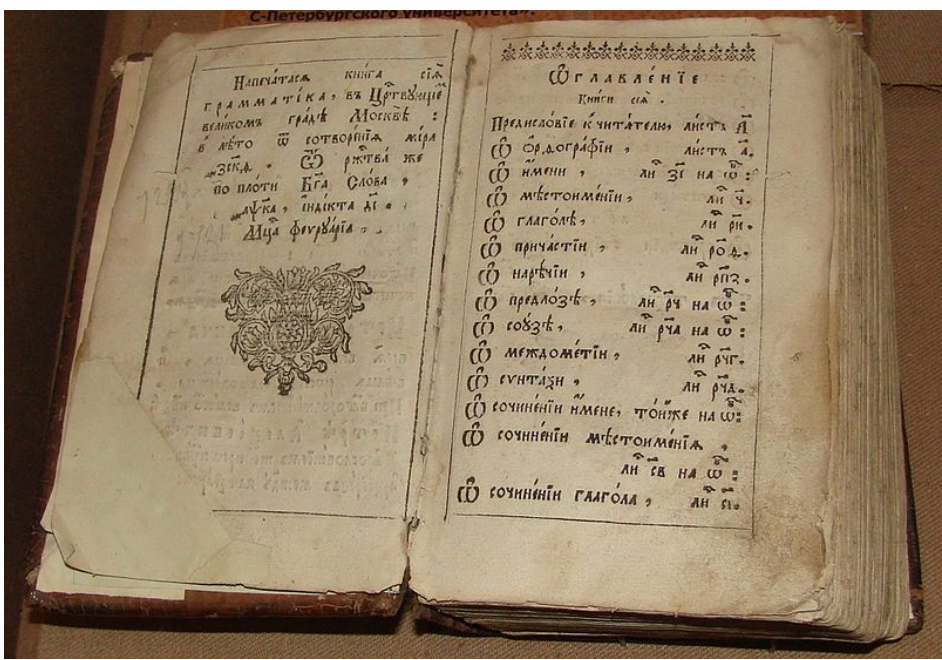 С-Петербургского университета».
Напеча́тасѧ кни́га сїѧ̀
грамматі́ка, въ Црⷭ҇твꙋющеⷨ
вели́комъ гра́дѣ Москвѣ̀ :
в̾ лѣ́то ѿ сотворе́нїѧ мі́ра
҂зс҃кѳ. Ѿ ржⷭ҇тва́ же
по пло́ти Бг҃а Сло́ва ,
҂аѱ҃ка , і҆ндікта д҃і .
Мцⷭ҇а феѵрꙋа́рїа .
Ѡ҆главле́нїе
Кни́ги сеѧ̀ .
Предисло́вїе к̾ чита́телю, ли́стъ а҃
Ѽ ѻрѳогра́фїи , ли́стъ а҃.
Ѽ и҆́мени , лиⷭ҇ з҃і на ѡ҆бⷪ :
Ѽ мѣстоиме́нїи , лиⷭ҇ ч҃.
Ѽ глаго́лѣ , лиⷭ҇ ри҃.
Ѽ прича́стїи , лиⷭ҇ ро҃д.
Ѽ нарѣ́чїи , лиⷭ҇ рп҃з.
Ѽ предло́зѣ , лиⷭ҇ рч҃ на ѡ҆бⷪ :
Ѽ сою́зѣ , лиⷭ҇ рч҃а на ѡ҆бⷪ :
Ѽ междоме́тїи , лиⷭ҇ рч҃г.
Ѽ сѵнта́ѯи , лиⷭ҇ рч҃д.
Ѽ сочине́нїи и҆́мене, то́йже на ѡ҆бⷪ :
Ѽ сочине́нїи мѣстоиме́нїѧ ,
лиⷭ҇ с҃в на ѡ҆бⷪ :
Ѽ сочине́нїи глаго́ла , лиⷭ҇ с҃і.